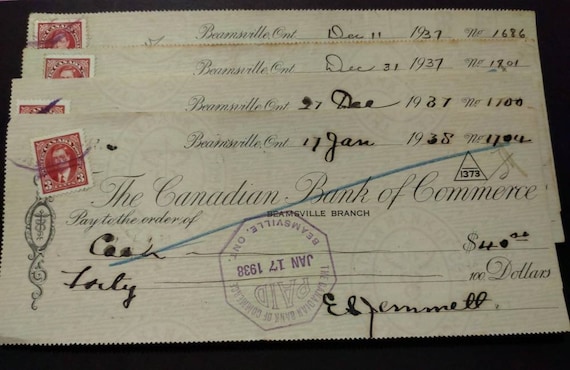 Beamsville, Ont Dec 11 1937 No 1686
Beamsville, Ont Dec 31 1937 No 1701
Beamsville, Ont 27 Dec 1937 No 1700
Beamsville, Ont 17 Jan 1938 No 1704
1373
The Canadian Bank of Commerce
BEAMSVILLE BRANCH
Pay to the order of
Cash $40.00
forty 100 Dollars
THE CANADIAN BANK OF COMMERCE
PAID
JAN 17 1938
BEAMSVILLE, ONT.
3 3